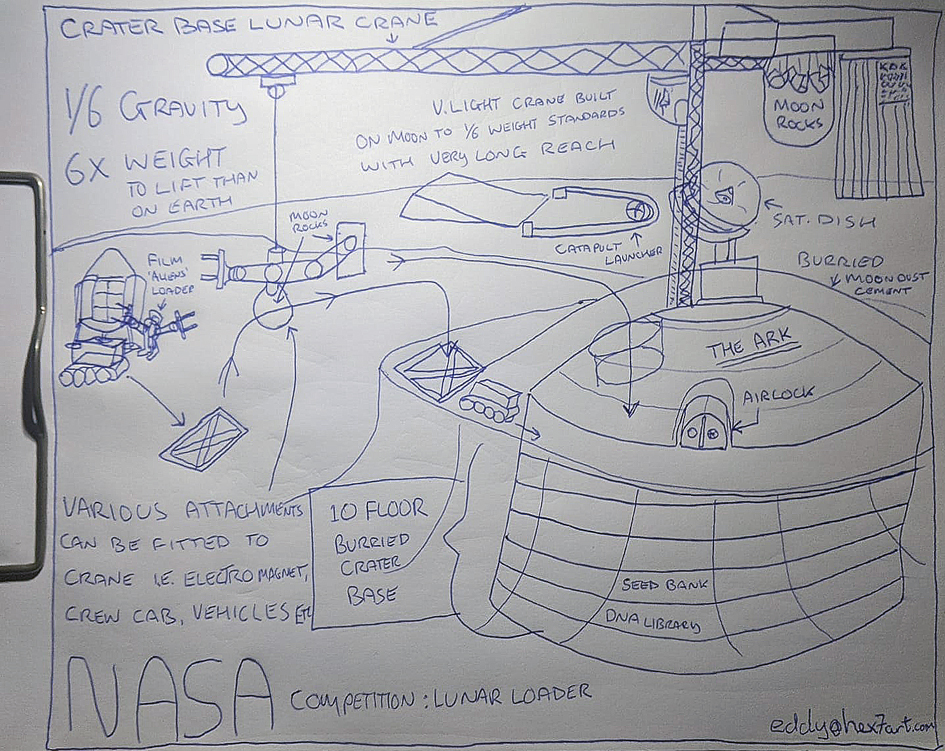 CRATER BASE LUNAR CRANE
1/6 GRAVITY
6X WEIGHT
TO LIFT THAN
ON EARTH
V. LIGHT CRANE BUILT
ON MOON TO 1/6 WEIGHT STANDARDS
WITH VERY LONG REACH
MOON
ROCKS
MOON
ROCKS
FILM
'ALIENS'
LOADER
CATAPULT
LAUNCHER
SAT. DISH
BURRIED
MOONDUST
CEMENT
THE ARK
AIRLOCK
VARIOUS ATTACHMENTS
CAN BE FITTED TO
CRANE I.E. ELECTROMAGNET,
CREW CAB, VEHICLES ETC
10 FLOOR
BURRIED
CRATER
BASE
SEED BANK
DNA LIBRARY
NASA COMPETITION: LUNAR LOADER
eddy@hex7art.com